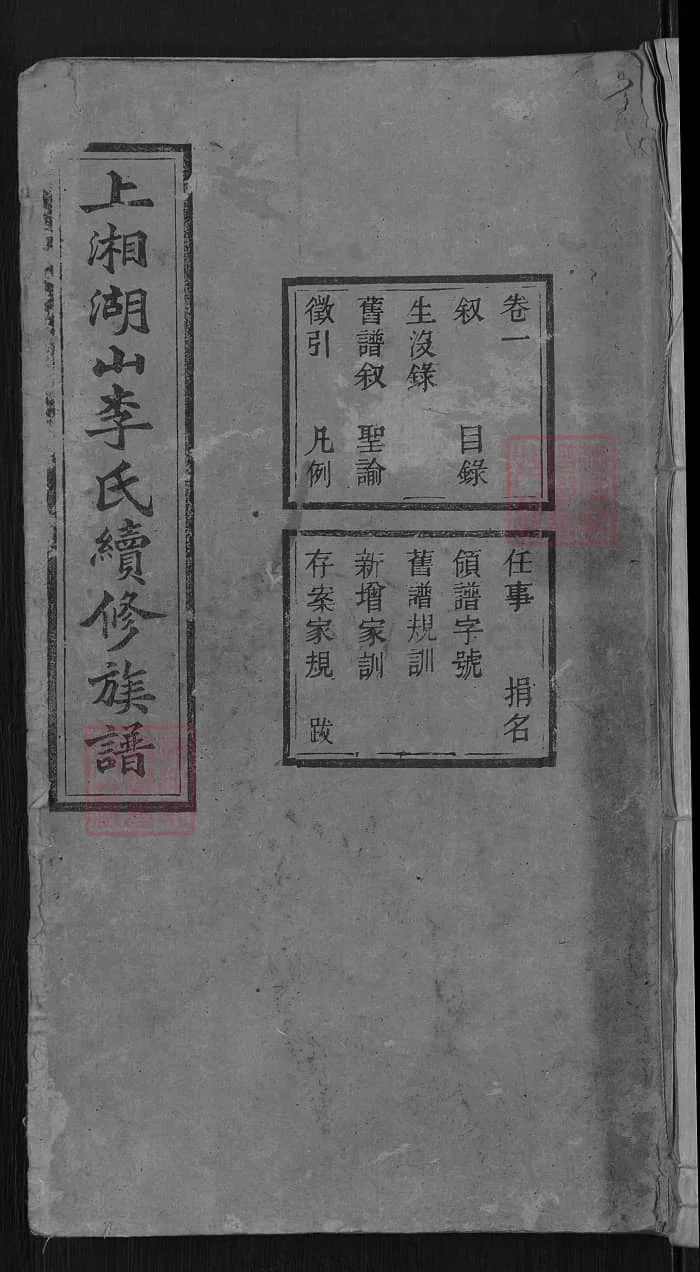 上湘湖山李氏續修族譜
卷一
叙　目錄
生沒錄
舊譜叙　聖諭
徵引　凡例
任事　捐名
領譜字號
舊譜規訓
新增家訓
存案家規　跋